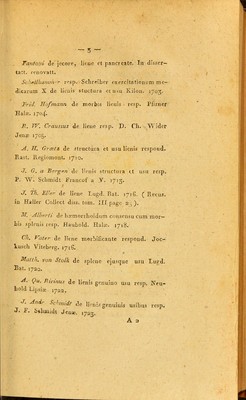 — 5 —
Fantoni de jecore, liene et pancreate. In disser-
tatt. renovatt.
Schelhammer resp. Schreiber exercitationum me-
dicarum X de lienis stuctura et usu Kilon. 1703.
Frid. Hofmann de morbis lienis resp. Pfizner
Halæ. 1704.
R. W. Crausius de liene resp. D. Ch. Wider
Jenæ 1705.
A. H. Graetz de structura et usu lienis respond.
Rast. Regiomont. 1710.
J. G. a Bergen de lienis structura et usu resp.
P. W. Schmidt Francof a V. 1713.
J. Th. Eller de liene Lugd. Bat. 1716. (Recus.
in Haller Collect diss. tom. III page 2 ).
M. Alberti de hæmorrhoidum consensu cum mor-
bis splenis resp. Haubold. Halæ. 1718.
Ch. Vater de liene morbificante respond. Joc-
kusch Viteberg. 1716.
Matth. van Stalk de splene ejusque usu Lugd.
Bat. 1722.
A. Qu. Ricinus de lienis genuino usu resp. Neu-
bold Lipsiæ 1722.
J. Andr. Schmidt de lienis genuinis usibus resp.
J. F. Schmids Jenæ. 1723.
A 2